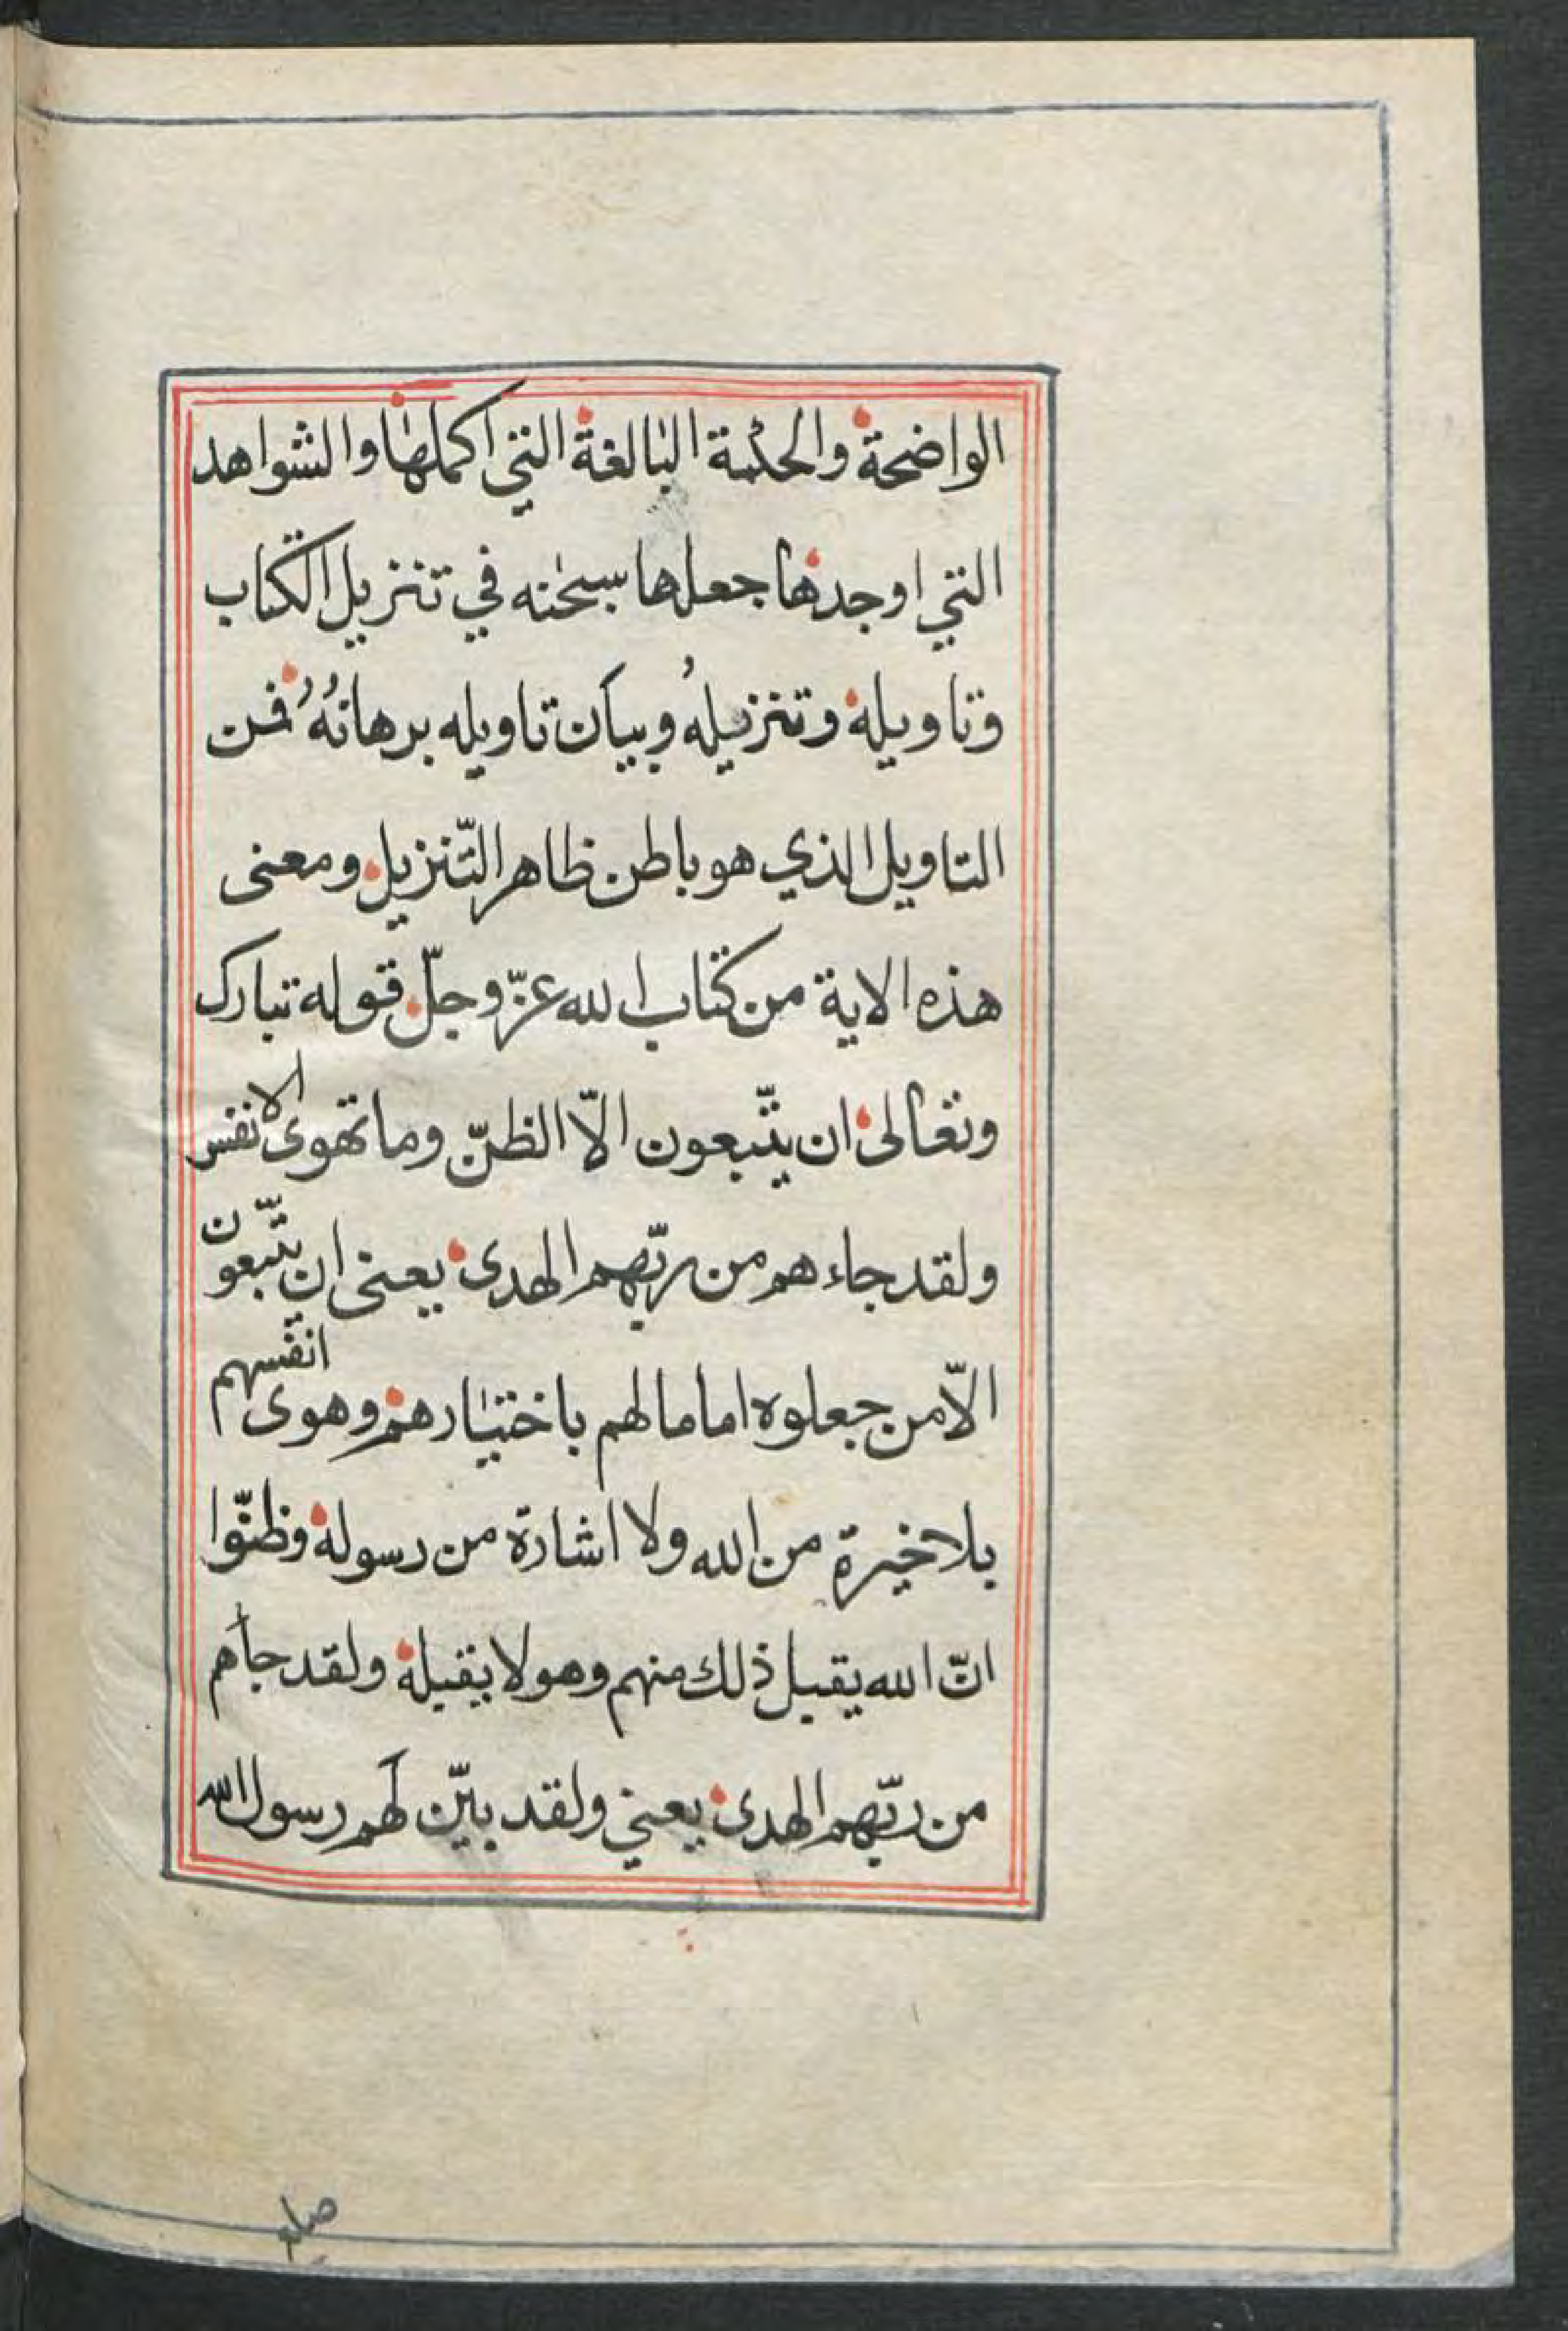 الواضحة والحكمة البالغة التي اكملها والشواهد
التي اوجدها جعلها سبحنه في تنزيل الكتاب
وتاويله وتنزيلهُ وبيان تاويله برهانهُ فمن
التاويل الذي هو باطن ظاهر التّنزيل ومعنى
هذه الاية من كتاب الله عزّ وجلّ قوله تبارك
وتعالى ان يتّبعون الاّ الظنّ وما تهوى الانفس
ولقد جاءهم من ربّهم الهدى يعنى ان يتّبعون
الاّ من جعلوه اماما لهم باختيارهم وهوى انفسهم
بلا خيرة من الله ولا اشارة من رسوله وظنّوا
انّ الله يقبل ذلك منهم وهو لا يقبله ولقد جأهم
من ربّهم الهدى يعني ولقد بيّن لهم رسول الله
صلع